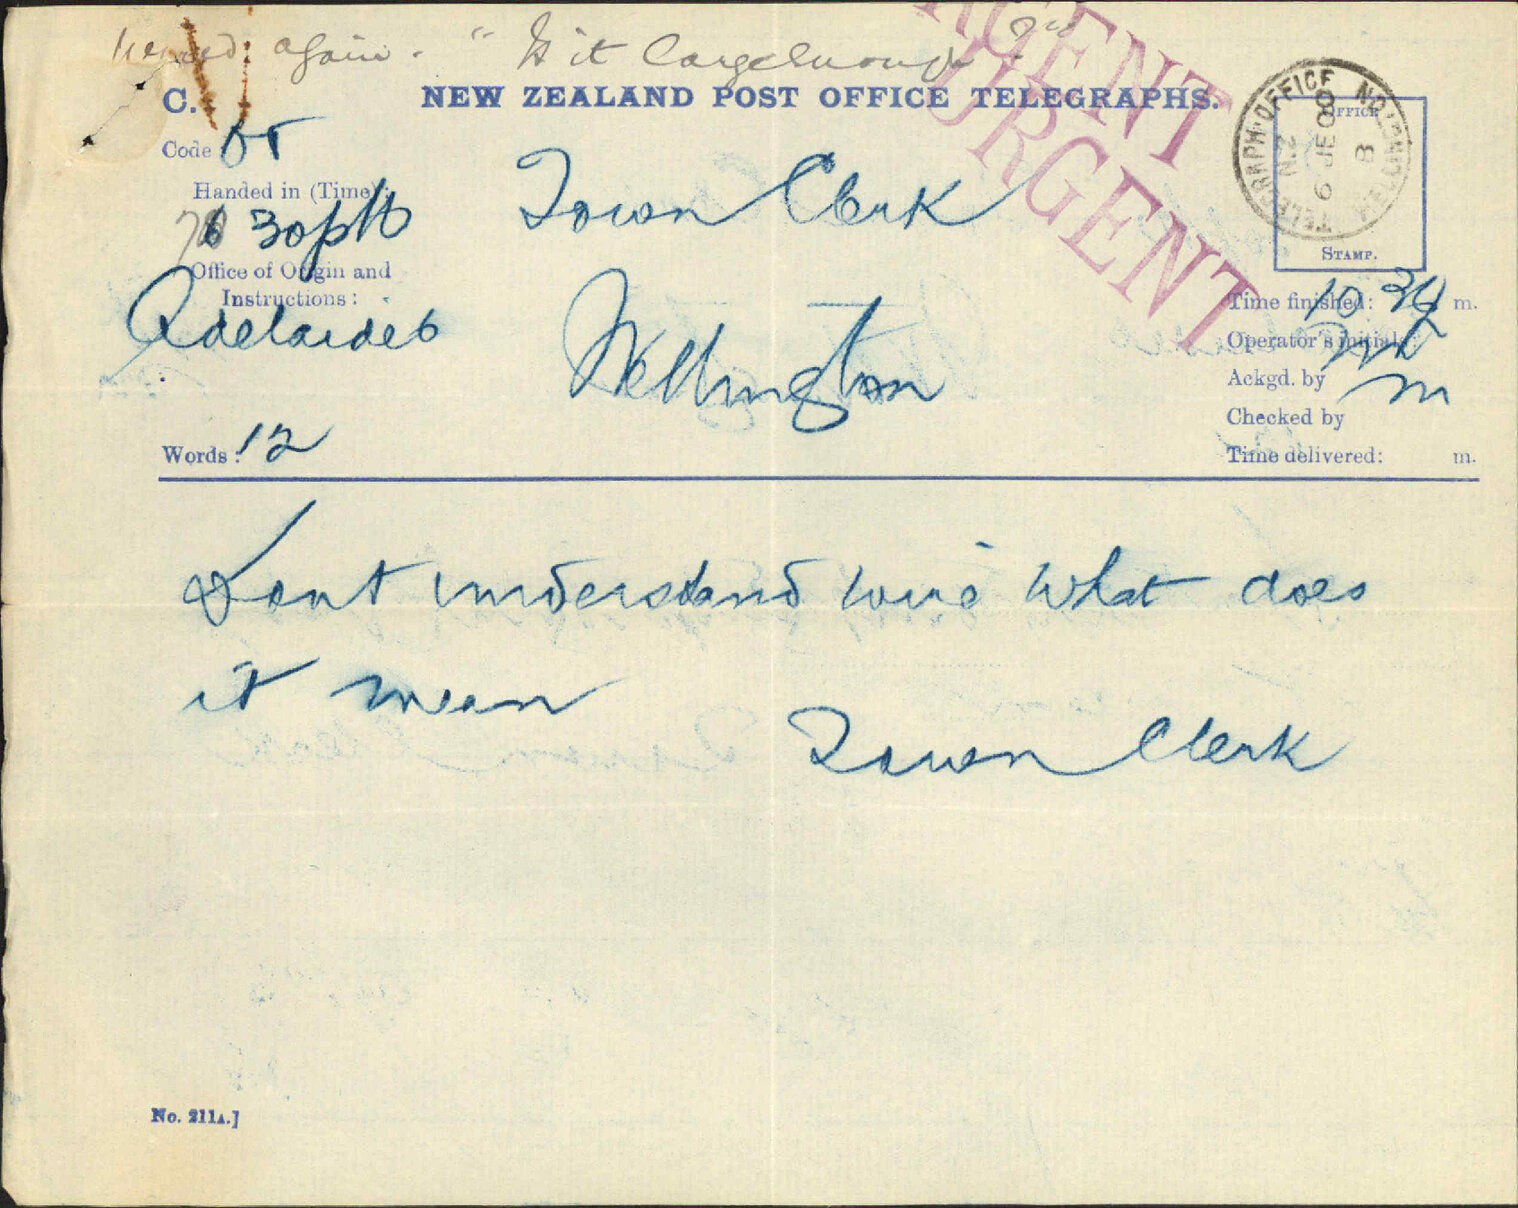 again. "Is it large enough ?"
C.
NEW ZEALAND POST OFFICE TELEGRAPHS.
URGENT
URGENT
Code
Handed in (Time):
6 30pm
Office of Origin and
Instructions:
Adelaide 6
Words: 12
Town Clerk
Wellington
TELEGRAPH·OFFICE WELLINGTON
N.Z
6 JE 08
8
OFFICE
STAMP.
Time finished: 10 m.
Operator's initials:
Ackgd. by m
Checked by
Time delivered: m.
Dont understand wire what does
it mean
Town Clerk
No. 211A.]